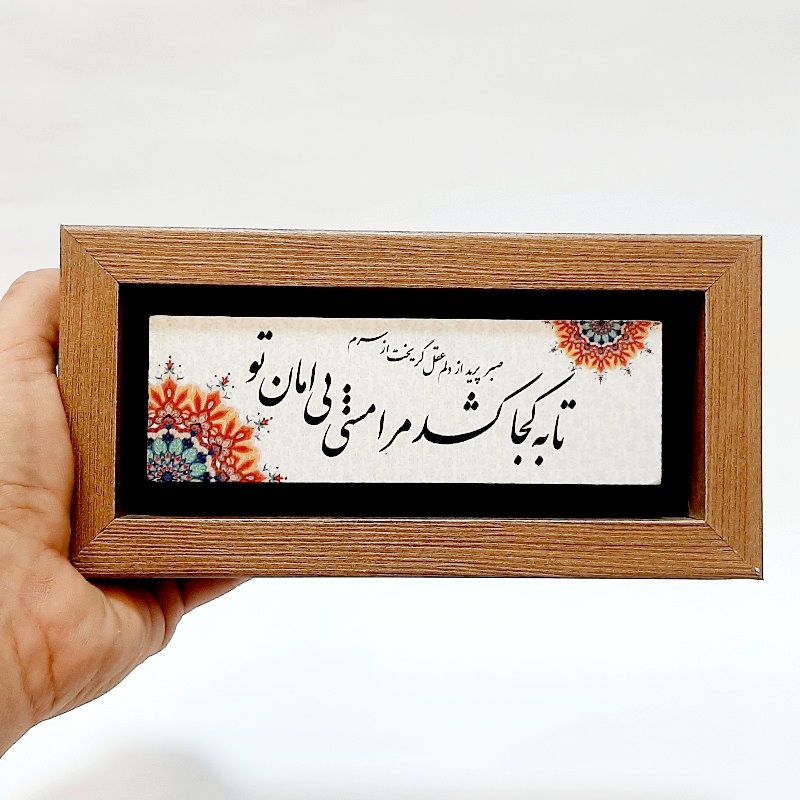 صبر پرید از دلم عقل گریخت از سرم
تا به کجا کشد مرا مستی بی امان تو